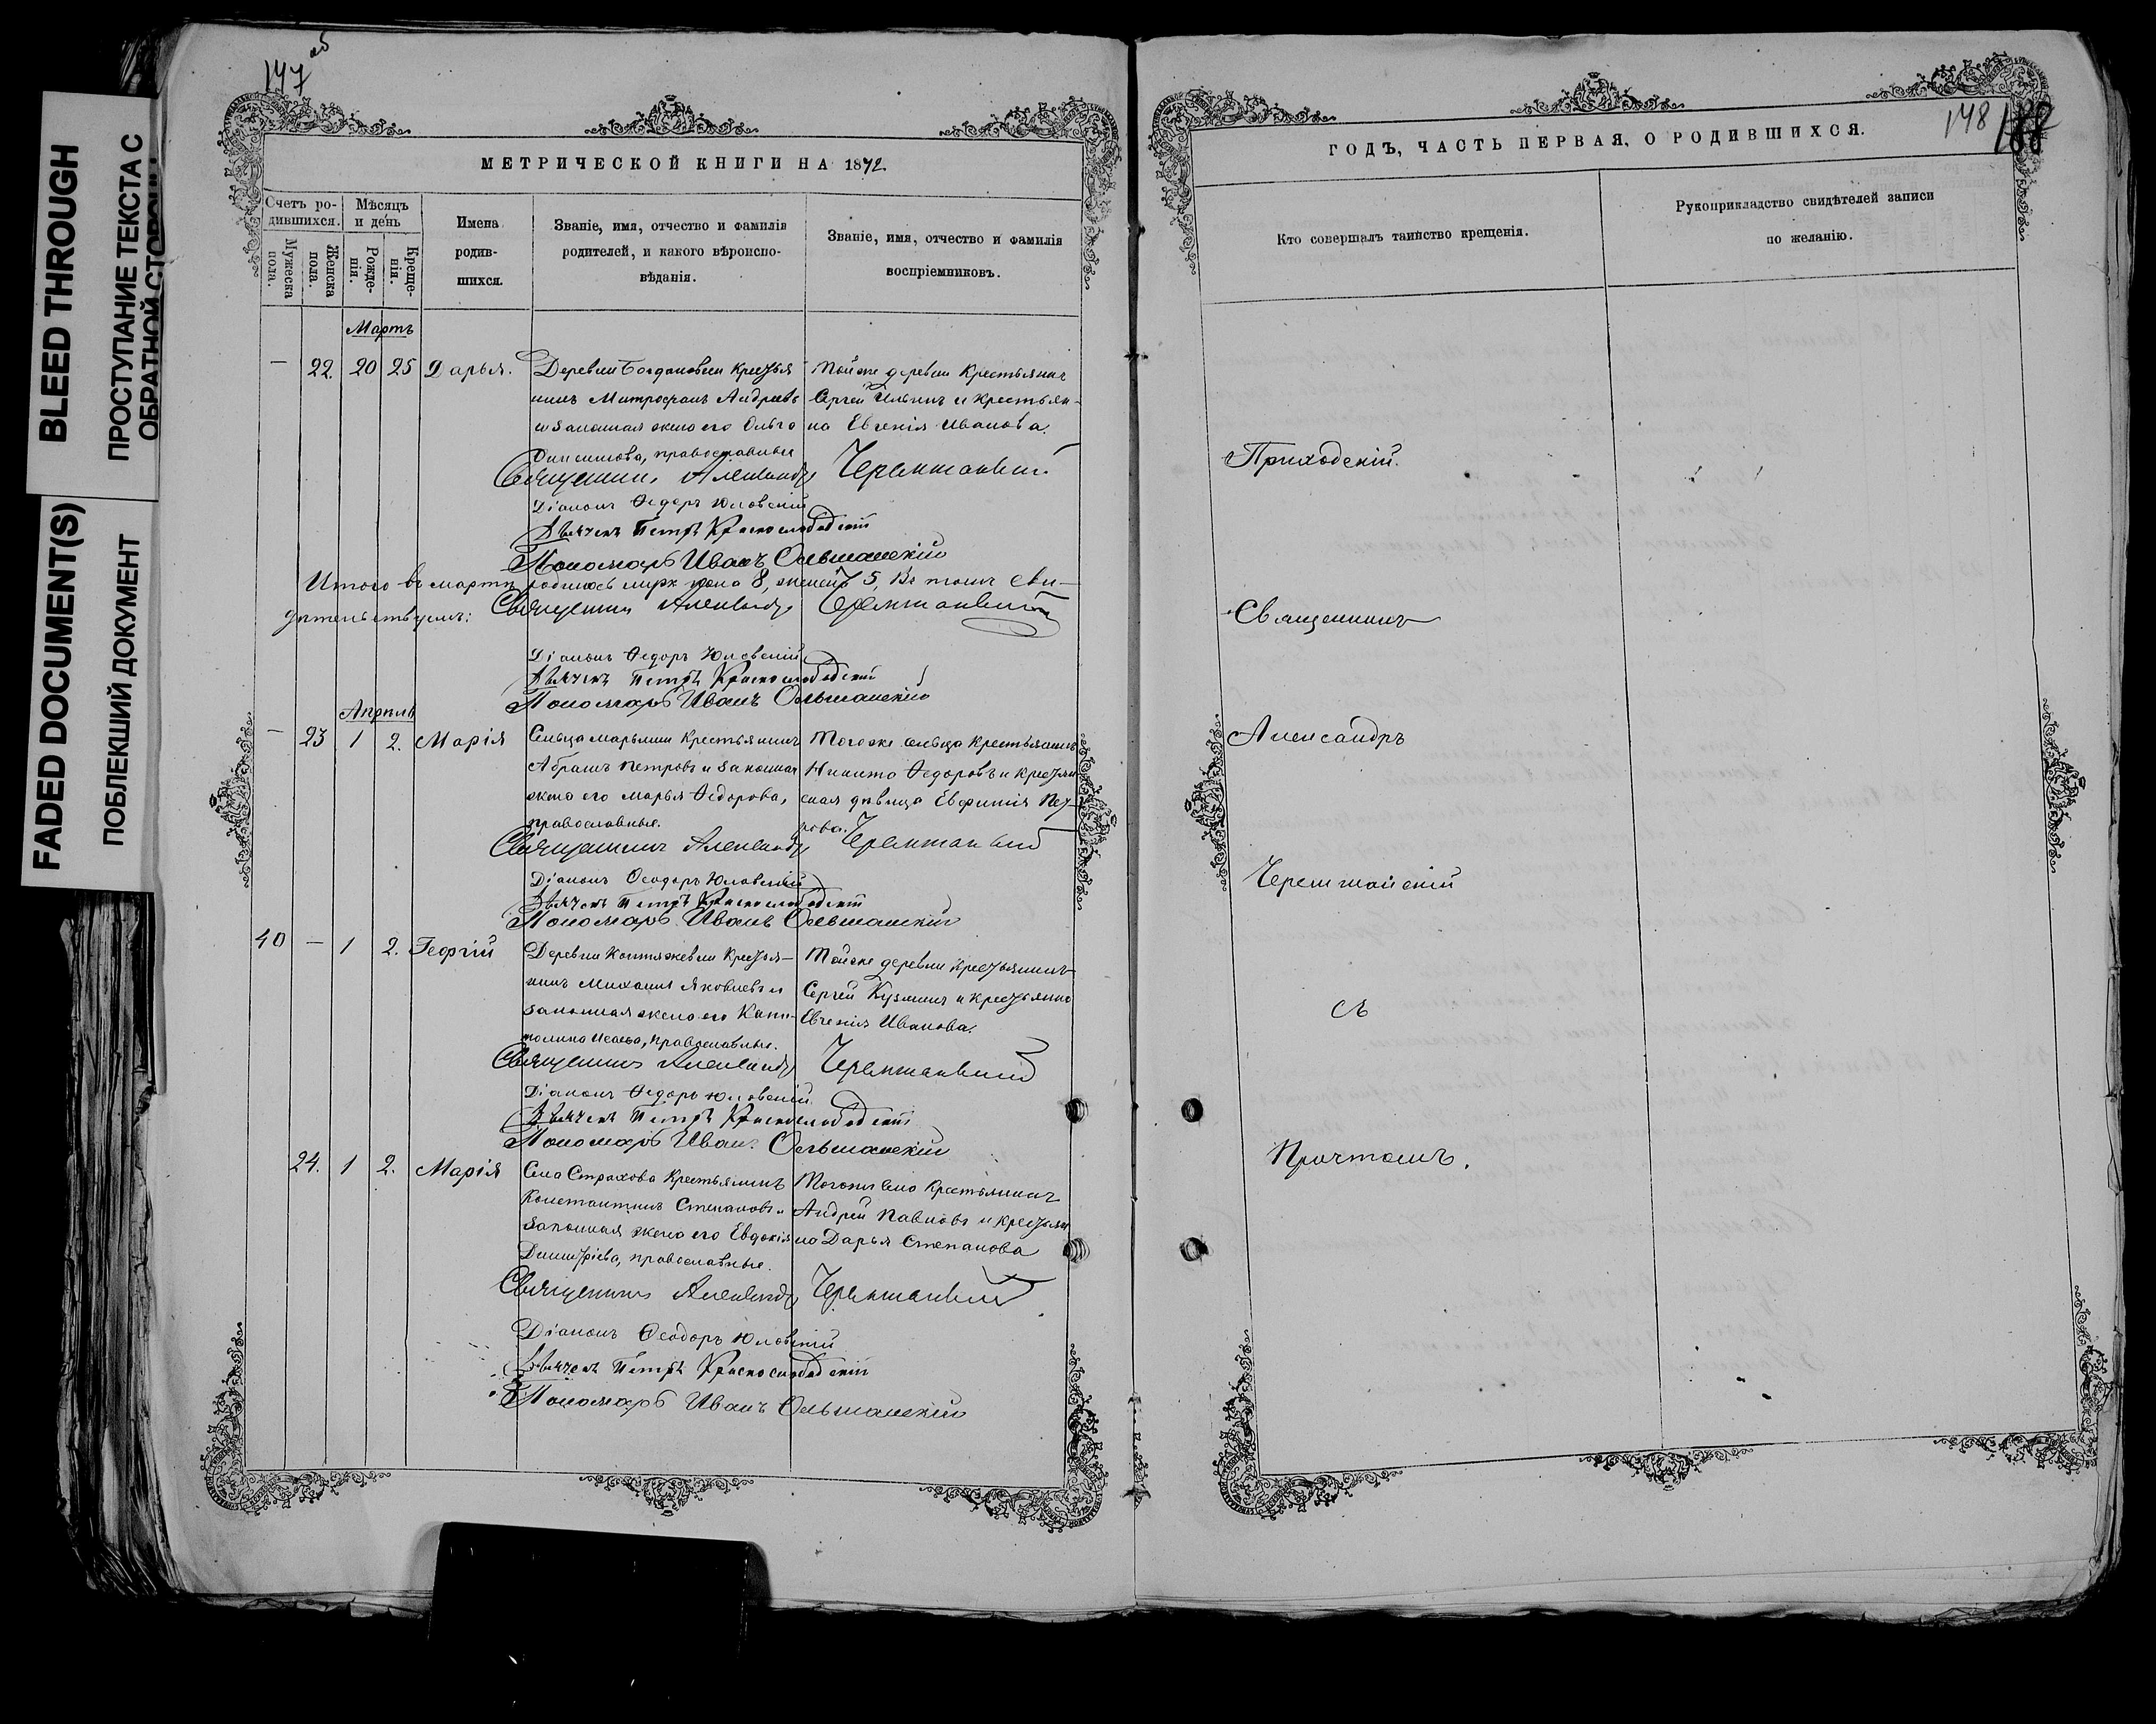 BLEED THROUGH
ПРОСТУПАНИЕ ТЕКСТА С
ОБРАТНОЙ СТОРОНЫ
FADED DOCUMENT(S)
ПОБЛЕКШИЙ ДОКУМЕНТ
147 об
МЕТРИЧЕСКОЙ КНИГИ НА 1872.
Счетъ ро-
дившихся.
Мѣсяцъ
и день
Мужеска
пола.
Женска
пола.
Рожде-
нія.
Креще-
нія.
Имена
родив-
шихся.
Званіе, имя, отчество и фамилія
родителей, и какого вѣроиспо-
вѣданія.
Званіе, имя, отчество и фамилія
воспріемниковъ.
Мартъ
— 22. 20 25 Дарья.
Деревни Богдановки Крестья
нинъ Митрофанъ Андреевъ
и законная жена его Ольга
Онисимова, православные
Тойже деревни Крестьянинъ
Сергѣй Ильинъ и крестьян-
ка Евгенія Иванова.
Священникъ Александръ Черемшанскій
Діаконъ Ѳедоръ Юловскій
Дьячекъ Петръ Краснослободскій
Пономарь Иванъ Ольшанскій
Итого въ мартѣ родилось муж. пола 8, женск. 5, Въ томъ сви-
дѣтельствуемъ: Священникъ Александръ Черемшанскій
Діаконъ Ѳедоръ Юловскій
Дьячекъ Петръ Краснослободскій
Пономарь Иванъ Ольшанскій
Апрѣль
— 23 1 2. Марія
Сельца Марьина Крестьянинъ
Абрамъ Петровъ и законная
жена его Марья Ѳедорова,
православные.
Тогоже сельца Крестьянинъ
Никита Ѳедоровъ и крестьян
ская дѣвица Евфимія Пет-
рова.
Священникъ Александръ Черемшанскій
Діаконъ Ѳеодоръ Юловскій
Дьячекъ Петръ Краснослободскій
Пономарь Иванъ Ольшанскій
40 — 1 2. Георгій
Деревни Контяжевки Крестья-
нинъ Михаилъ Яковлевъ и
законная жена его Капи-
толина Исаева, православные.
Тойже деревни Крестьянинъ
Сергѣй Кузминъ и крестьянка
Евгенія Иванова.
Священникъ Александръ Черемшанскій
Діаконъ Ѳедоръ Юловскій
Дьячекъ Петръ Краснослободскій
Пономарь Иванъ Ольшанскій
24. 1 2. Марія
Села Страхова Крестьянинъ
Константинъ Степановъ и
законная жена его Евдокія
Димитріева, православные.
Тогоже села Крестьянинъ
Андрей Павловъ и крестьян
ка Дарья Степанова
Священникъ Александръ Черемшанскій
Діаконъ Ѳеодоръ Юловскій
Дьячекъ Петръ Краснослободскій
Пономарь Иванъ Ольшанскій
148 188
ГОДЪ, ЧАСТЬ ПЕРВАЯ, О РОДИВШИХСЯ.
Кто совершалъ таинство крещенія.
Рукоприкладство свидѣтелей записи
по желанію.
Приходскій
Священникъ
Александръ
Черемшанскій
съ
Причтомъ.